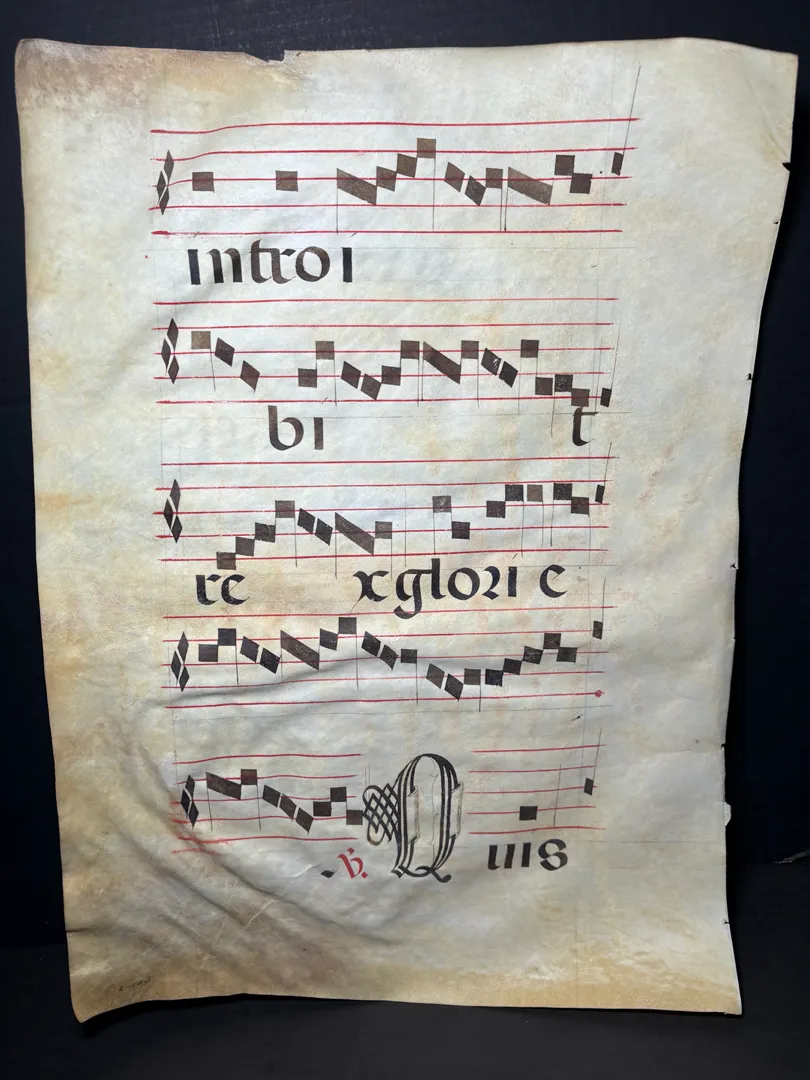 introi
bi t
re x glori e
℣. Q uis